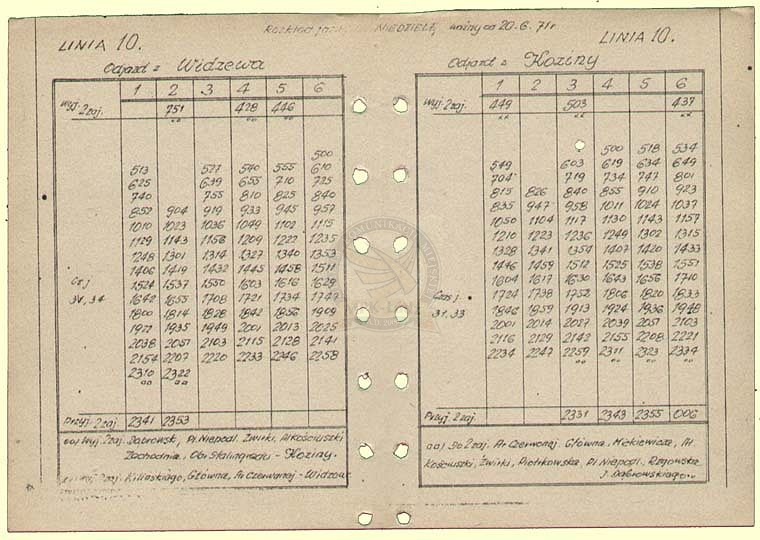 Rozkład jazdy NIEDZIELĘ ważny od 20.6.71r
LINIA 10.
Odjazd z Widzewa
1 2 3 4 5 6
Wyj. z zaj. 751 428 446
500
513 527 540 555 610
625 639 655 710 725
740 755 810 825 840
852 904 919 933 945 957
1010 1023 1036 1049 1102 1115
1129 1143 1156 1209 1222 1235
1248 1301 1314 1327 1340 1353
1406 1419 1432 1445 1458 1511
1524 1537 1550 1603 1616 1629
1642 1655 1708 1721 1734 1747
1800 1814 1828 1842 1856 1909
1922 1935 1949 2001 2013 2025
2038 2051 2103 2115 2128 2141
2154 2207 2220 2233 2246 2258
2310 2322
Cz. j.
31, 34
Przyj. z zaj 2341 2353
oo) Wyj. z zaj. Dąbrowsk., Pl. Niepodl. Żwirki, Al. Kościuszki
Zachodnia, Obr. Stalingradu - Koziny.
z zaj. Kilińskiego, Główna, Ar. Czerwonej - Widzew
LINIA 10.
Odjazd z Koziny
1 2 3 4 5 6
Wyj. z zaj. 449 503 437
500 518 534
549 603 619 634 649
704 719 734 747 801
815 826 840 855 910 923
935 947 958 1011 1024 1037
1050 1104 1117 1130 1143 1157
1210 1223 1236 1249 1302 1315
1328 1341 1354 1407 1420 1433
1446 1459 1512 1525 1538 1551
1604 1617 1630 1643 1656 1710
1724 1738 1752 1806 1820 1833
1846 1859 1913 1924 1936 1948
2001 2014 2027 2039 2051 2103
2116 2129 2142 2155 2208 2221
2234 2247 2259 2311 2323 2334
Czas j.
31.33
Przyj. z zaj 2331 2343 2355 006
oo) Do z zaj. Ar. Czerwonej Główna, Mickiewicza, Al.
Kościuszki, Żwirki, Piotrkowska, Pl. Niepodl. Rzgowska
J. Dąbrowskiego